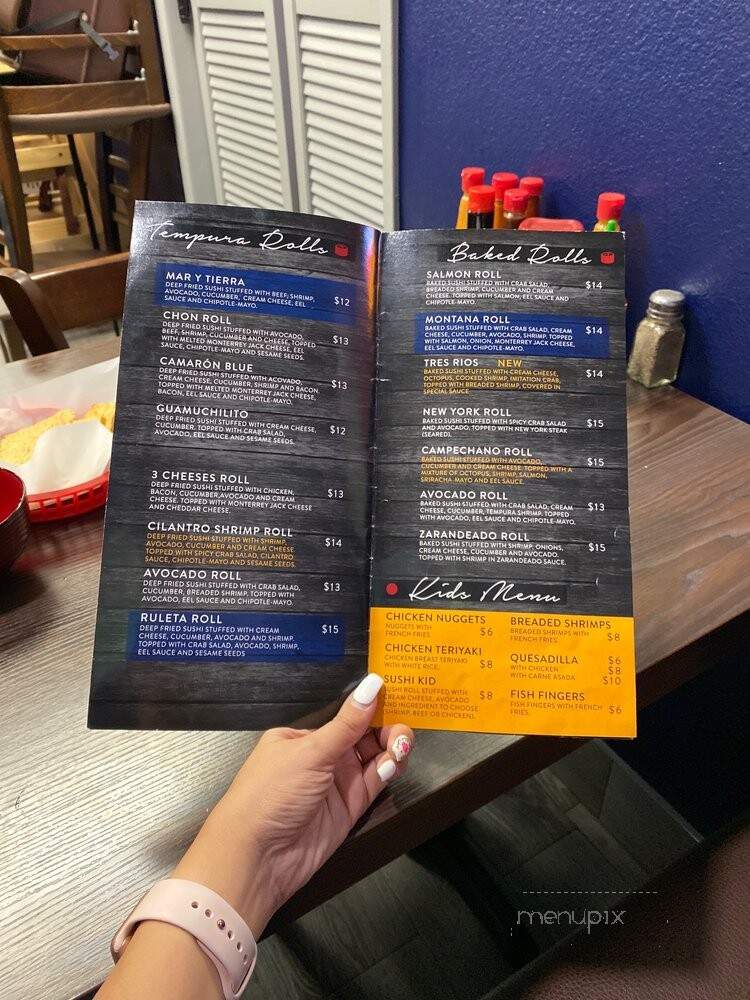 Tempura Rolls
MAR Y TIERRA
DEEP FRIED SUSHI STUFFED WITH BEEF, SHRIMP,
AVOCADO, CUCUMBER, CREAM CHEESE, EEL
SAUCE AND CHIPOTLE-MAYO.
$12
CHON ROLL
DEEP FRIED SUSHI STUFFED WITH AVOCADO,
BEEF, SHRIMP, CUCUMBER AND CHEESE, TOPPED
WITH MELTED MONTEREY JACK CHEESE, EEL
SAUCE, CHIPOTLE-MAYO AND SESAME SEEDS.
$13
CAMARÓN BLUE
DEEP FRIED SUSHI STUFFED WITH ACOVADO,
CREAM CHEESE, CUCUMBER, SHRIMP AND BACON,
TOPPED WITH MELTED MONTEREY JACK CHEESE,
BACON, EEL SAUCE AND CHIPOTLE-MAYO.
$13
GUAMUCHILITO
DEEP FRIED SUSHI STUFFED WITH CREAM CHEESE,
CUCUMBER. TOPPED WITH CRAB SALAD,
AVOCADO, EEL SAUCE AND SESAME SEEDS.
$12
3 CHEESES ROLL
DEEP FRIED SUSHI STUFFED WITH CHICKEN,
BACON, CUCUMBER,AVOCADO AND CREAM
CHEESE. TOPPED WITH MONTERREY JACK CHEESE
AND CHEDDAR CHEESE.
$13
CILANTRO SHRIMP ROLL
DEEP FRIED SUSHI STUFFED WITH SHRIMP,
AVOCADO, CUCUMBER AND CREAM CHEESE
TOPPED WITH SPICY CRAB SALAD, CILANTRO
SAUCE, CHIPOTLE-MAYO AND SESAME SEEDS.
$14
AVOCADO ROLL
DEEP FRIED SUSHI STUFFED WITH CRAB SALAD,
CUCUMBER, BREADED SHRIMP. TOPPED WITH
AVOCADO, EEL SAUCE AND CHIPOTLE-MAYO.
$13
RULETA ROLL
DEEP FRIED SUSHI STUFFED WITH CREAM
CHEESE, CUCUMBER, AVOCADO AND SHRIMP.
TOPPED WITH CRAB SALAD, AVOCADO, SHRIMP,
EEL SAUCE AND SESAME SEEDS
$15
Baked Rolls
SALMON ROLL
BAKED SUSHI STUFFED WITH CRAB SALAD,
BREADED SHRIMP, CUCUMBER AND CREAM
CHEESE. TOPPED WITH SALMON, EEL SAUCE AND
CHIPOTLE-MAYO.
$14
MONTANA ROLL
BAKED SUSHI STUFFED WITH CRAB SALAD, CREAM
CHEESE, CUCUMBER, AVOCADO, SHRIMP. TOPPED
WITH SALMON, ONION, MONTEREY JACK CHEESE,
EEL SAUCE AND CHIPOTLE-MAYO.
$14
TRES RIOS NEW
BAKED SUSHI STUFFED WITH CREAM CHEESE,
OCTOPUS, COOKED SHRIMP, IMITATION CRAB,
TOPPED WITH BREADED SHRIMP, COVERED IN
SPECIAL SAUCE
$14
NEW YORK ROLL
BAKED SUSHI STUFFED WITH SPICY CRAB SALAD
AND AVOCADO, TOPPED WITH NEW YORK STEAK
(SEARED).
$15
CAMPECHANO ROLL
BAKED SUSHI STUFFED WITH AVOCADO,
CUCUMBER AND CREAM CHEESE. TOPPED WITH A
MIXTURE OF OCTOPUS, SHRIMP, SALMON,
SRIRACHA-MAYO AND EEL SAUCE.
$15
AVOCADO ROLL
BAKED SUSHI STUFFED WITH CRAB SALAD, CREAM
CHEESE, CUCUMBER, TEMPURA SHRIMP. TOPPED
WITH AVOCADO, EEL SAUCE AND CHIPOTLE-MAYO.
$13
ZARANDEADO ROLL
BAKED SUSHI STUFFED WITH SHRIMP, ONIONS,
CREAM CHEESE, CUCUMBER AND AVOCADO.
TOPPED WITH SHRIMP IN ZARANDEADO SAUCE.
$15
Kids Menu
CHICKEN NUGGETS
NUGGETS WITH
FRENCH FRIES
$6
CHICKEN TERIYAKI
CHICKEN BREAST TERIYAKI
WITH WHITE RICE.
$8
SUSHI KID
SUSHI ROLL STUFFED WITH
CREAM CHEESE, AVOCADO
AND INGREDIENT TO CHOOSE
(SHRIMP, BEEF OR CHICKEN).
$8
BREADED SHRIMPS
BREADED SHRIMPS WITH
FRENCH FRIES.
$8
QUESADILLA $6
WITH CHICKEN $8
WITH CARNE ASADA. $10
FISH FINGERS
FISH FINGERS WITH FRENCH
FRIES.
$6
menupix